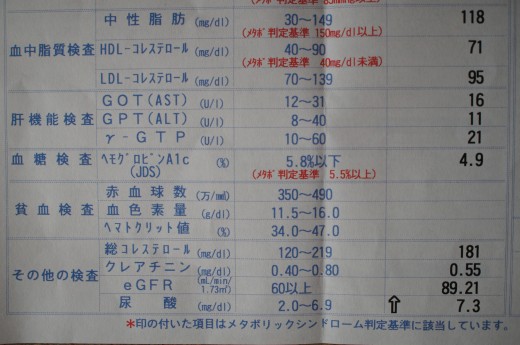 中性脂肪 (mg/dl) 30～149 118
(ﾒﾀﾎﾞ判定基準 150mg/dl以上)
血中脂質検査 HDL-ｺﾚｽﾃﾛｰﾙ (mg/dl) 40～90 71
(ﾒﾀﾎﾞ判定基準 40mg/dl未満)
LDL-ｺﾚｽﾃﾛｰﾙ (mg/dl) 70～139 95
GOT(AST) (U/l) 12～31 16
肝機能検査 GPT(ALT) (U/l) 8～40 11
γ-GTP (U/l) 10～60 21
血糖検査 ﾍﾓｸﾞﾛﾋﾞﾝA1c (%) 5.8%以下 4.9
(JDS) (ﾒﾀﾎﾞ判定基準 5.5%以上)
赤血球数 (万/mm) 350～490
貧血検査 血色素量 (g/dl) 11.5～16.0
ﾍﾏﾄｸﾘｯﾄ値 (%) 34.0～47.0
総ｺﾚｽﾃﾛｰﾙ (mg/dl) 120～219 181
その他の検査 クレアチニン (mg/dl) 0.40～0.80 0.55
eGFR (mL/min/1.73㎡) 60以上 89.21
尿酸 (mg/dl) 2.0～6.9 ⇧ 7.3
*印の付いた項目はメタボリックシンドローム判定基準に該当しています。